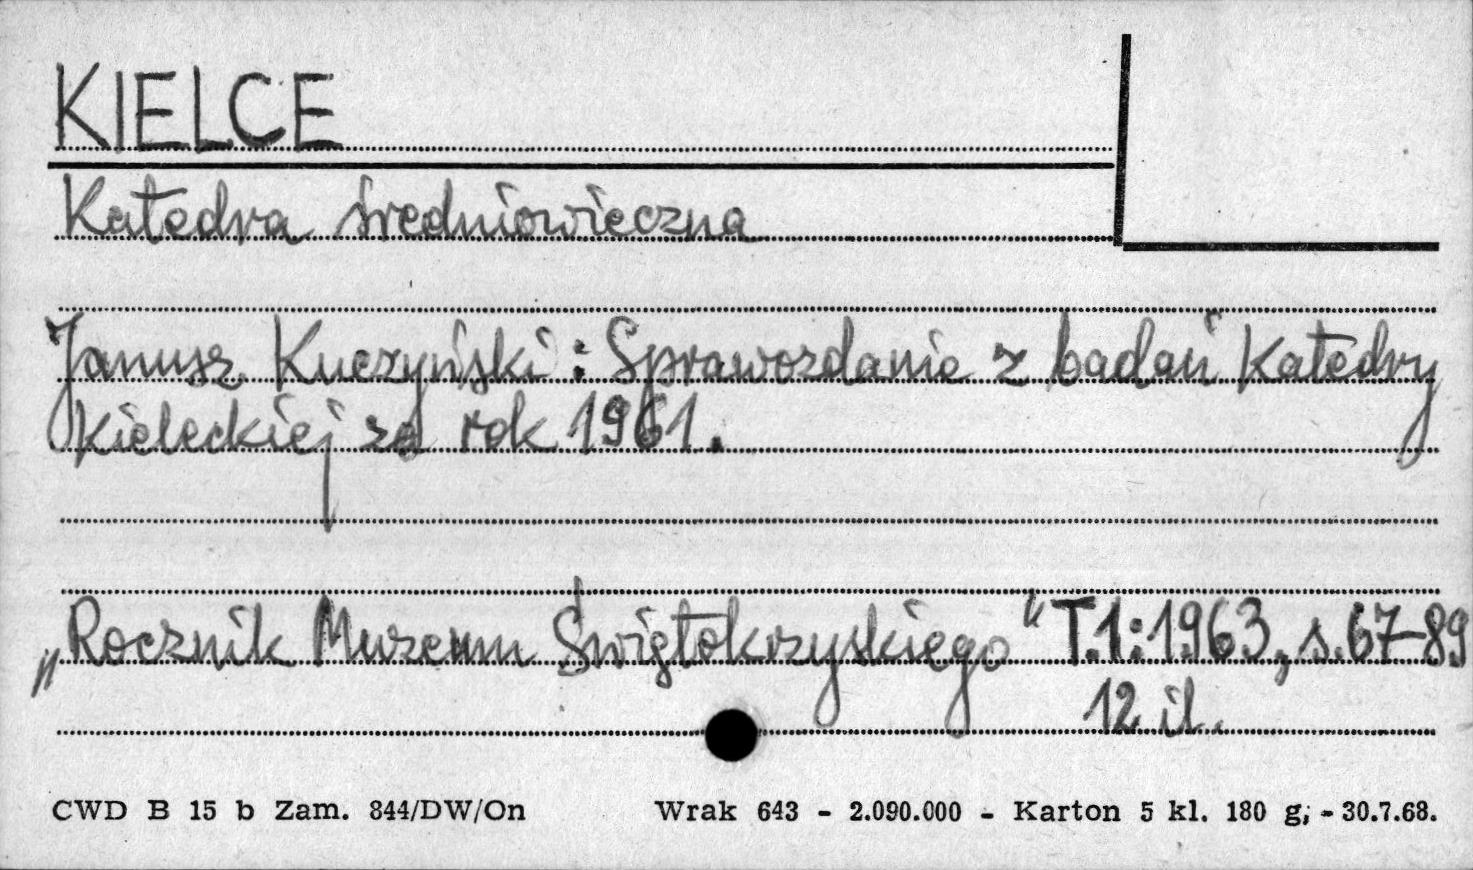 KIELCE
Katedra średniowieczna
Janusz Kuczyński: Sprawozdanie z badań Katedry
Kieleckiej za rok 1961.
„Rocznik Muzeum Świętokrzyskiego" T.1:1963, s.67-89
12 il.
CWD B 15 b Zam. 844/DW/On Wrak 643 - 2.090.000 - Karton 5 kl. 180 g, - 30.7.68.